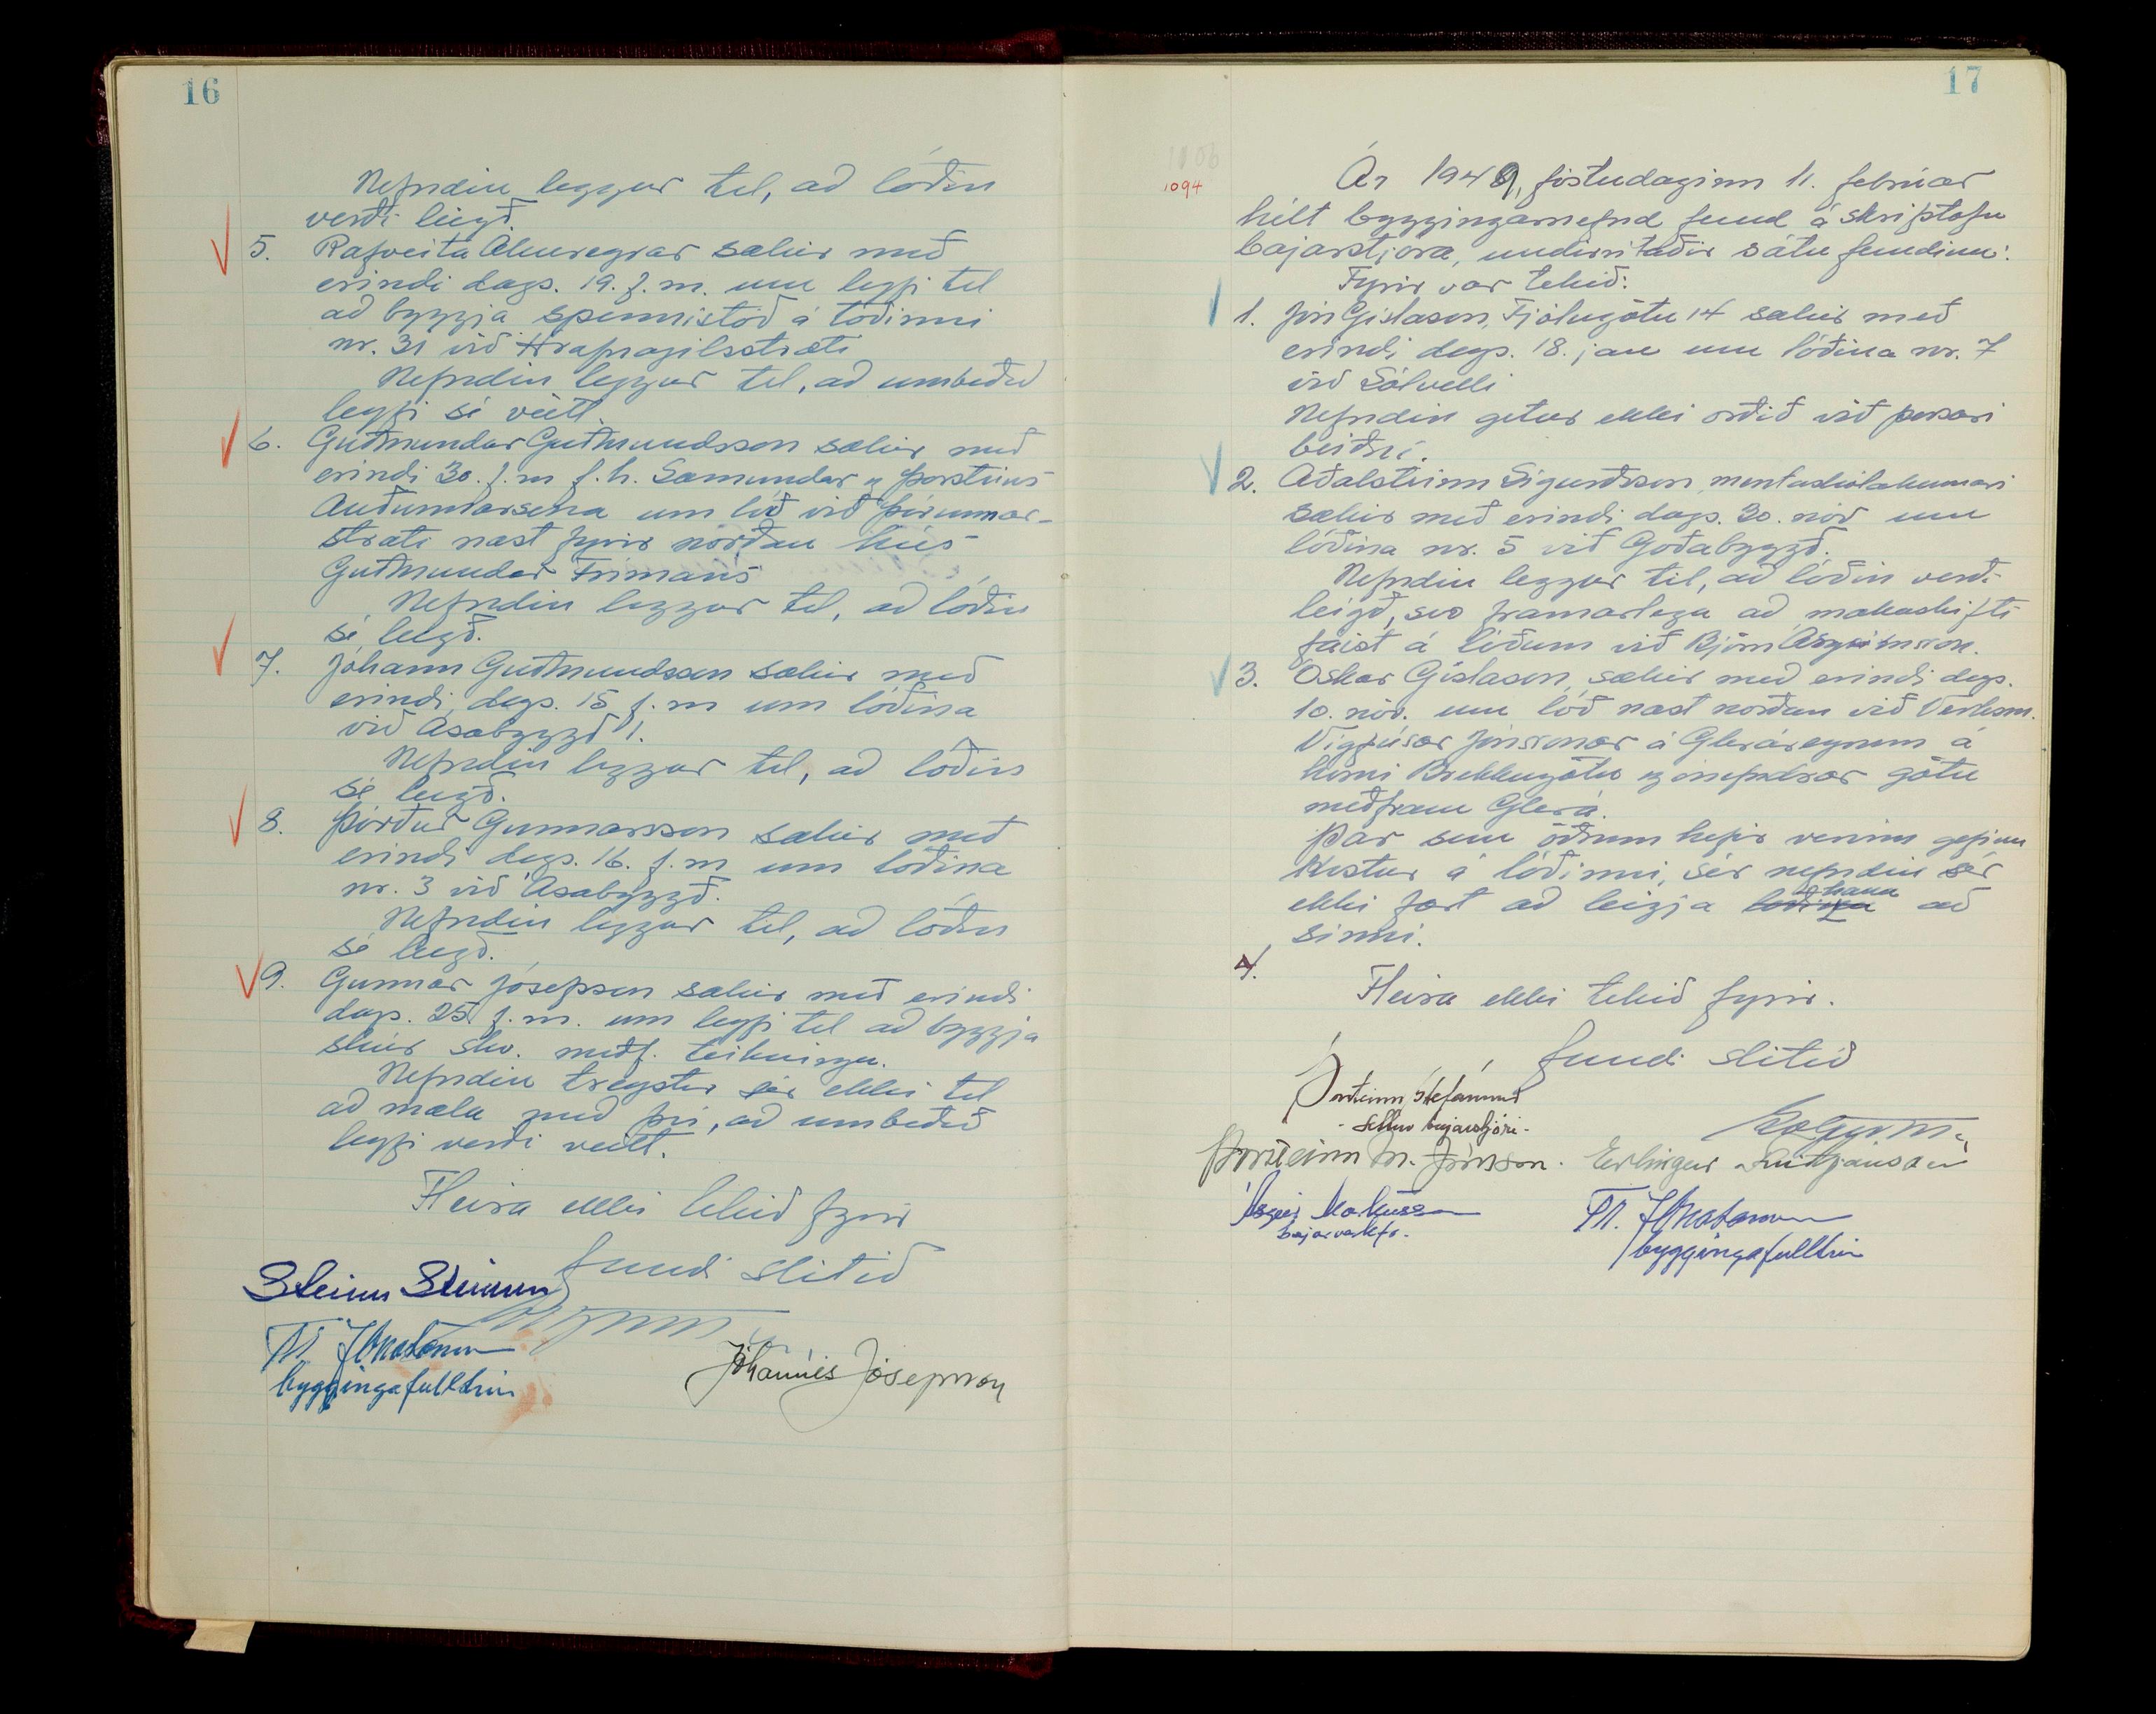 16
Nefndin leggur til, að lóðin
verði leigð.
5. Rafveita Akureyrar sækir með
erindi dags. 19. f.m. um leyfi til
að byggja spennistöð á lóðinni
nr. 31 við Hrafnagilsstræti
Nefndin leggur til, að umbeðið
leyfi sé veitt.
6. Guðmundur Guðmundsson sækir með
erindi 30. f.m f.h. Sæmundar og Þorsteins
Auðunnarsona um lóð við Þórunnar-
stræti næst fyrir norðan hús
Guðmundar Frímanns
Nefndin leggur til, að lóðin
sé leigð.
7. Jóhann Guðmundsson sækir með
erindi dags. 15 f.m um lóðina
við Ásabyggð 1.
Nefndin leggur til, að lóðin
sé leigð.
8. Þórður Gunnarsson sækir með
erindi dags. 16. f.m um lóðina
nr. 3 við Ásabyggð.
Nefndin leggur til, að lóðin
sé leigð.
9. Gunnar Jósefsson sækir með erindi
dags. 25. f.m. um leyfi til að byggja
skúr skv. meðf. teikningu.
Nefndin treystir sér ekki til
að mæla með því, að umbeðið
leyfi verði veitt.
Fleira ekki tekið fyrir
fundi slitið
Steinn Steinsen
byggingafulltrúi
Jóhannes Jósepsson
17
1106
1094
Ár 1949, föstudaginn 11. febrúar
hélt byggingarnefnd fund á skrifstofu
bæjarstjóra, undirritaðir sátu fundinn:
Fyrir var tekið:
1. Jón Gíslason, Fjólugötu 14 sækir með
erindi dags. 18. jan um lóðina nr. 7
við Sólvelli
Nefndin getur ekki orðið við þessari
beiðni.
2. Aðalsteinn Sigurðsson, mentaskólakennari
sækir með erindi dags. 30. nóv um
lóðina nr. 5 við Goðabyggð.
Nefndin leggur til, að lóðin verði
leigð, svo framarlega að makaskifti
fáist á lóðum við Björn Ásgeirsson.
3. Óskar Gíslason, sækir með erindi dags.
10. nóv. um lóð næst norðan við Verksm.
Vigfúsar Jónssonar á Gleráreyrum á
horni Brekkugötu og ónefndrar götu
meðfram Glerá.
Þar sem öðrum hefir verinn gefinn
kostur á lóðinni, sér nefndin sér
ekki fært að leigja lóðina hana að
sinni.
4.
Fleira ekki tekið fyrir.
fundi slitið
Þorsteinn Stefánsson
- settur bæjarstjóri -
Þorsteinn M. Jónsson. Erlingur Friðjónsson
Ásgeir Markússon
bæjarverkfr.
byggingafulltrúi